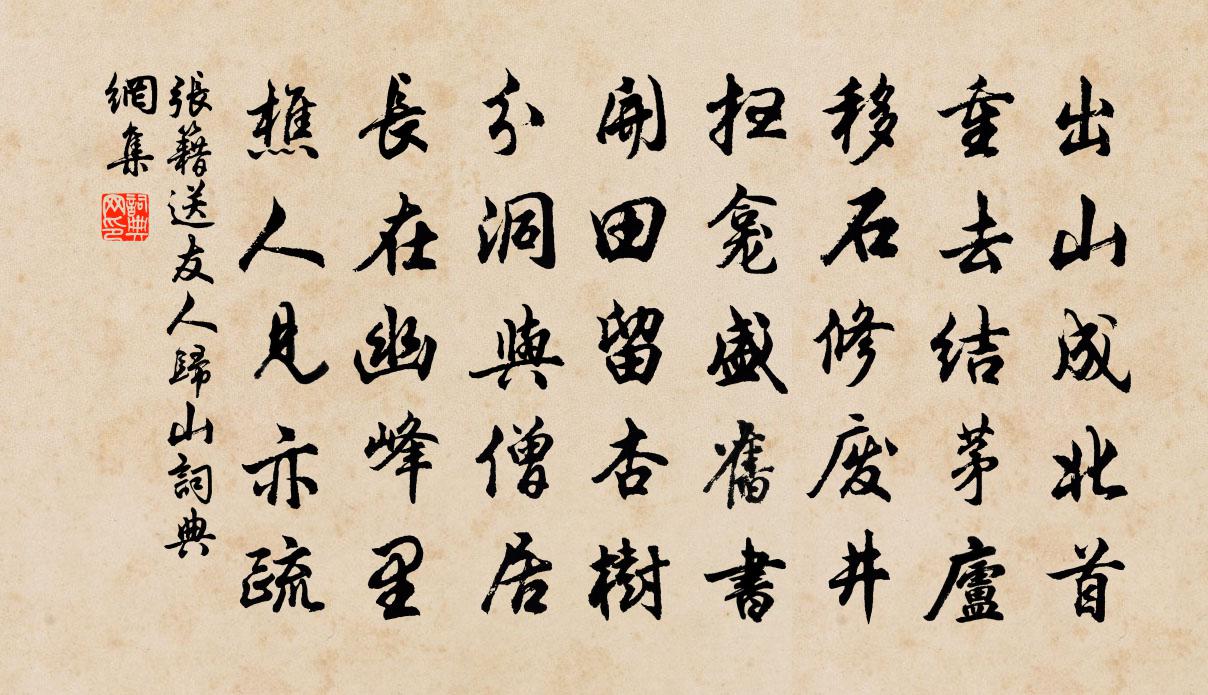 出山成北首
重去結茅廬
移石修廢井
掃龕盛舊書
開田留杏樹
分洞與僧居
長在幽峰里
樵人見亦疏
張籍送友人歸山詞典
網集
詞典网印